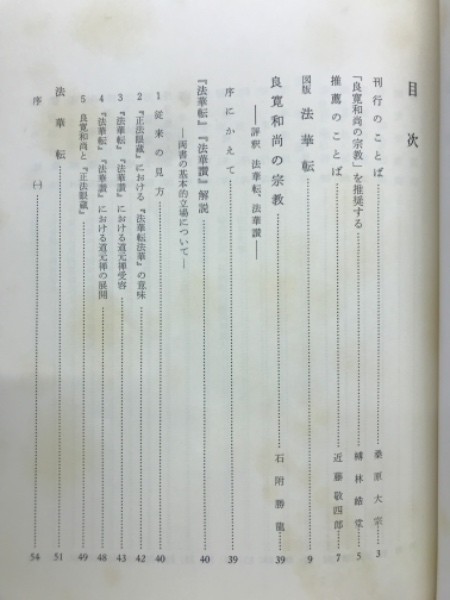 目次
刊行のことば 桑原大宗 3
「良寛和尚の宗教」を推奨する 林 堂 5
推薦のことば 近藤敬四郎 7
図版 法華転 9
良寛和尚の宗教 石附勝龍 39
――評釈 法華転、法華讃――
序にかえて 39
『法華転』『法華讃』解説 40
―両書の基本的立場について―
1 従来の見方 40
2 『正法眼蔵』における『法華転法華』の意味 42
3 『法華転』『法華讃』における道元禅受容 43
4 『法華転』『法華讃』における道元禅の展開 48
5 良寛和尚と『正法眼蔵』 49
法華転 51
序 ㈠ 54